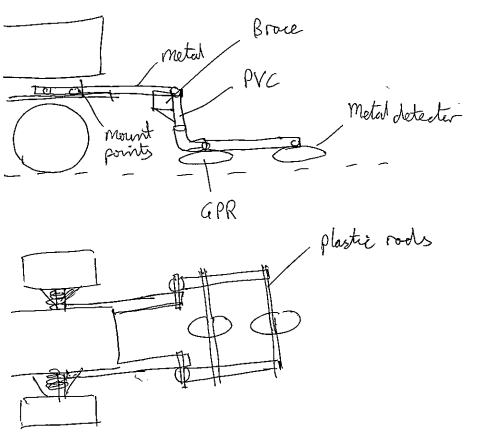 Brace
metal
PVC
Metal detector
mount
points
GPR
plastic rods